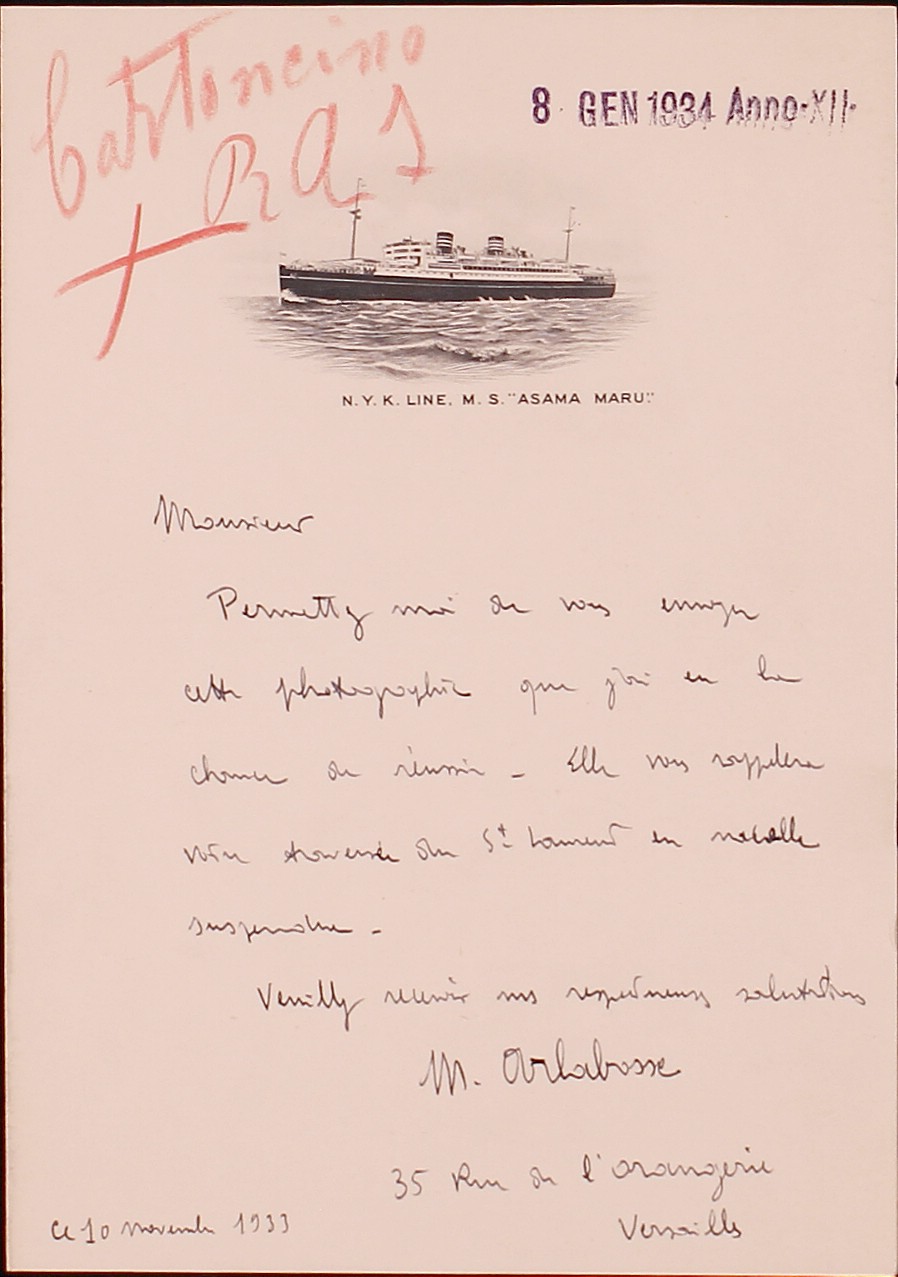 Cartoncino
RAS
8 GEN 1934 Anno XII
N. Y. K. LINE, M. S. "ASAMA MARU"
Monsieur
Permettez moi de vous envoyer
cette photographie que j'ai eu la
chance de réussir - Elle vous rappelera
votre traversée du St Laurent en nacelle
suspendue -
Veuillez recevoir mes respectueuses salutations
M. Arlabosse
35 Rue de l'orangerie
Versailles
ce 10 novembre 1933